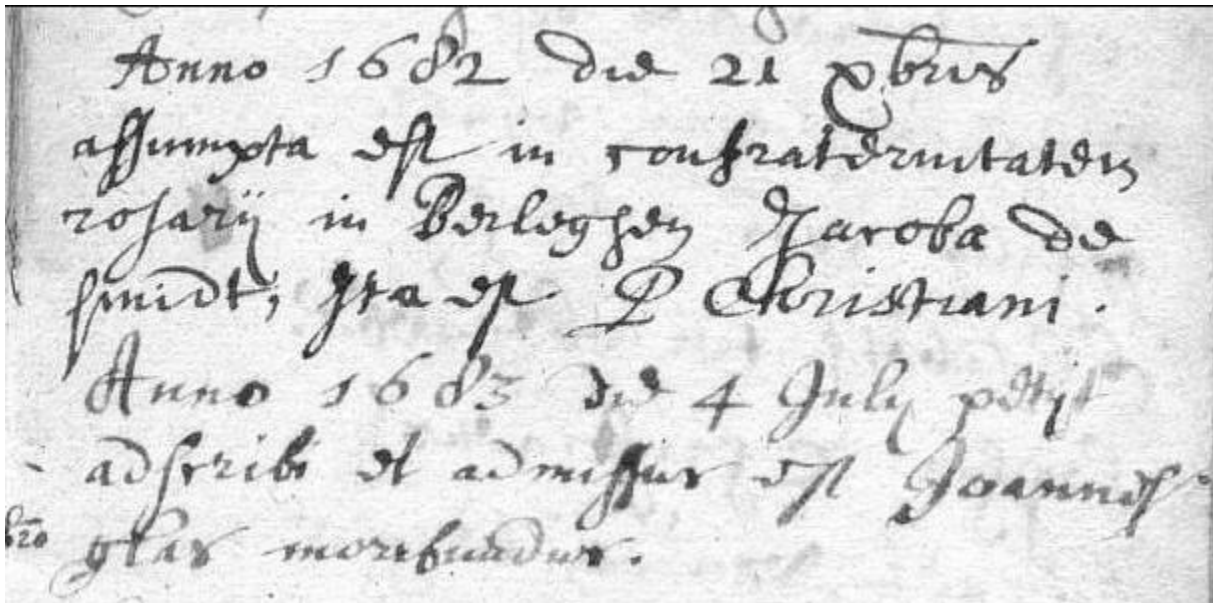 Anno 1682 die 21 xbris
assumpta est in confraternitatem
rosarij in Berleghem Jacoba de
smidt, Ita est P Christiani.
Anno 1683 die 4 July petijt
adscribi et admissus est Joannes
moribundus.